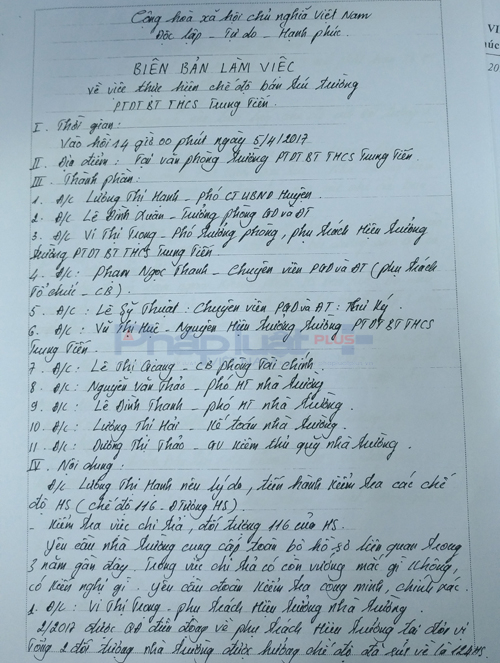 Cộng hòa xã hội chủ nghĩa Việt Nam
Độc lập - Tự do - Hạnh phúc.
BIÊN BẢN LÀM VIỆC
về việc thực hiện chế độ bán trú trường
PTDT BT THCS Trung Tiến.
I. Thời gian:
Vào hồi 14 giờ 00 phút ngày 5/4/2017.
II. Địa điểm: Tại văn phòng trường PTDT BT THCS Trung Tiến.
III. Thành phần:
1. Đ/c Lương Thị Hạnh - Phó CT UBND Huyện.
2. Đ/c Lê Đình Xuân - Trưởng phòng GD và ĐT
3. Đ/c Vi Thị Trọng - Phó trưởng phòng, phụ trách Hiệu trưởng
trường PTDT BT THCS Trung Tiến
4. Đ/c: Phạm Ngọc Thanh - Chuyên viên PGD và ĐT (phụ trách
Tổ chức - CB).
5. Đ/c: Lê Sỹ Thuật: Chuyên viên PGD và ĐT: Thư ký.
6. Đ/c: Vũ Thị Huê - Nguyên Hiệu trưởng trường PTDT BT THCS
Trung Tiến.
7. Đ/c: Lê Thị Giang - CB phòng Tài chính.
8. Đ/c: Nguyễn Văn Thảo - phó HT nhà trường
9. Đ/c: Lê Đình Thanh - phó HT nhà trường.
10. Đ/c: Lương Thị Hải - Kế toán nhà trường.
11. Đ/c: Dương Thị Thảo - GV kiêm thủ quỹ nhà trường.
IV. Nội dung:
Đ/c Lương Thị Hạnh nêu lý do, tiến hành kiểm tra các chế
độ HS (chế độ 116 - Đ Tượng HS).
- Kiểm tra việc chi trả, đối tượng 116 của HS.
Yêu cầu nhà trường cung cấp toàn bộ hồ sơ liên quan trong
3 năm gần đây. Trong việc chi trả có còn vướng mắc gì không,
có kiến nghị gì. Yêu cầu đoàn kiểm tra công minh, chính xác.
1. Đ/c: Vi Thị Trọng - phụ trách Hiệu trưởng nhà trường.
2/2017 được QĐ điều động về phụ trách Hiệu Trưởng tại đơn vị
Tổng 2 đối tượng nhà trường được hưởng chế độ đã rút về là 124HS
Phapluat PLUS
VI
20